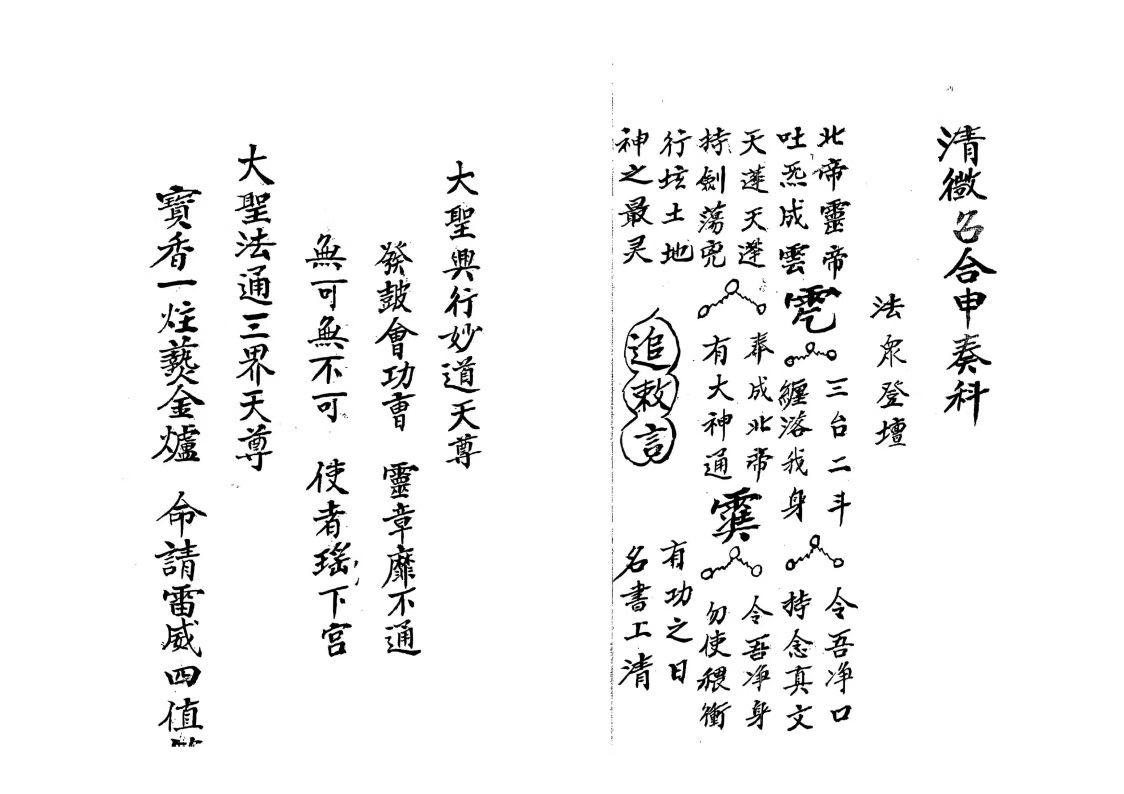 清微召合申奏科
法眾登壇
北帝靈帝 三台二斗 令吾净口
吐炁成雲 纏落我身 持念真文
天蓬天蓬 奉成北帝 令吾净身
持劍蕩兇 有大神通 勿使穢衝
行垓土地 有功之日
神之最灵 追敕言 名書上清
大聖興行妙道天尊
發鼓會功曹 靈章靡不通
無可無不可 使者瑤下宫
大聖法通三界天尊
寳香一炷爇金爐 命請雷威四值